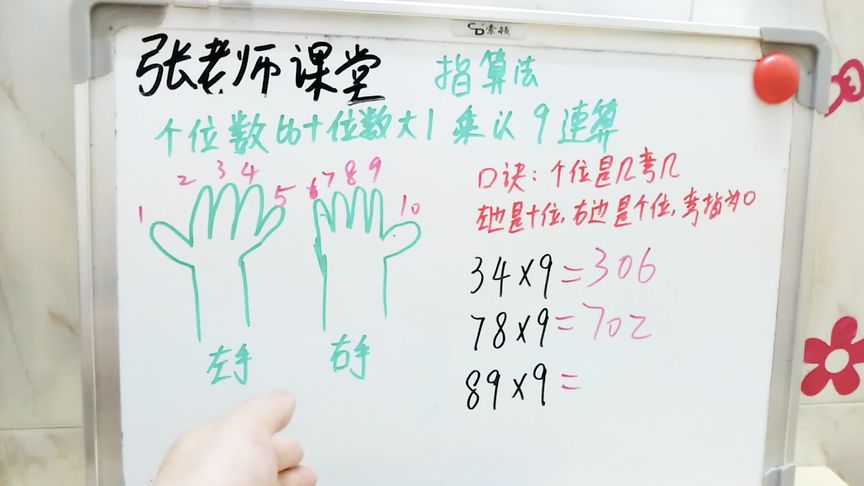 索顿
张老师课堂 指算法
个位数比十位数大1乘以9速算
1 2 3 4 5 6 7 8 9 10
左手 右手
口诀:个位是几弯几
左边是十位,右边是个位,弯指为0
34×9=306
78×9=702
89×9=